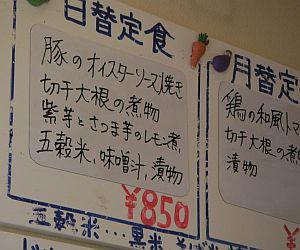 日替定食
豚のオイスターソース焼き
切干大根の煮物
紫芋とさつま芋のレモン煮,
五穀米,味噌汁,漬物
¥850
五穀米…黒米
月替定食
鶏の和風トマ
切干大根の煮
漬物